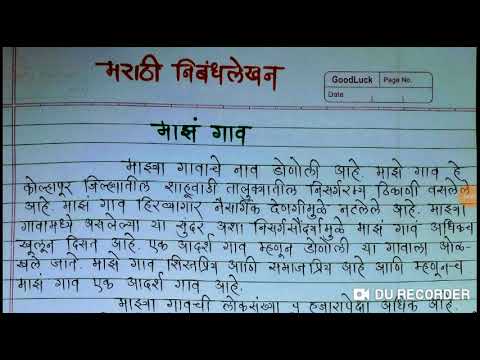 मराठी निबंधलेखन
GoodLuck
Page No.
Date
माझं गाव
माझ्या गावाचे नाव डोणोली आहे. माझे गाव हे
कोल्हापूर जिल्ह्यातील शाहूवाडी तालुक्यातील निसर्गरम्य ठिकाणी वसलेले
आहे माझं गाव हिरव्यागार नैसर्गिक देणगीमुळे नटलेले आहे. माझ्या
गावामध्ये असलेल्या या सुंदर अशा निसर्गसौंदर्यामुळे माझं गाव अधिकच
खुलून दिसत आहे. एक आदर्श गाव म्हणून डोणोली या गावाला ओळ-
खले जाते. माझं गाव शिस्तप्रिय आणि समाजप्रिय आहे आणि म्हणून-च
माझं गाव एक आदर्श गाव आहे.
माझ्या गावची लोकसंख्या ५ हजारापेक्षा अधिक आहे.
DU RECORDER